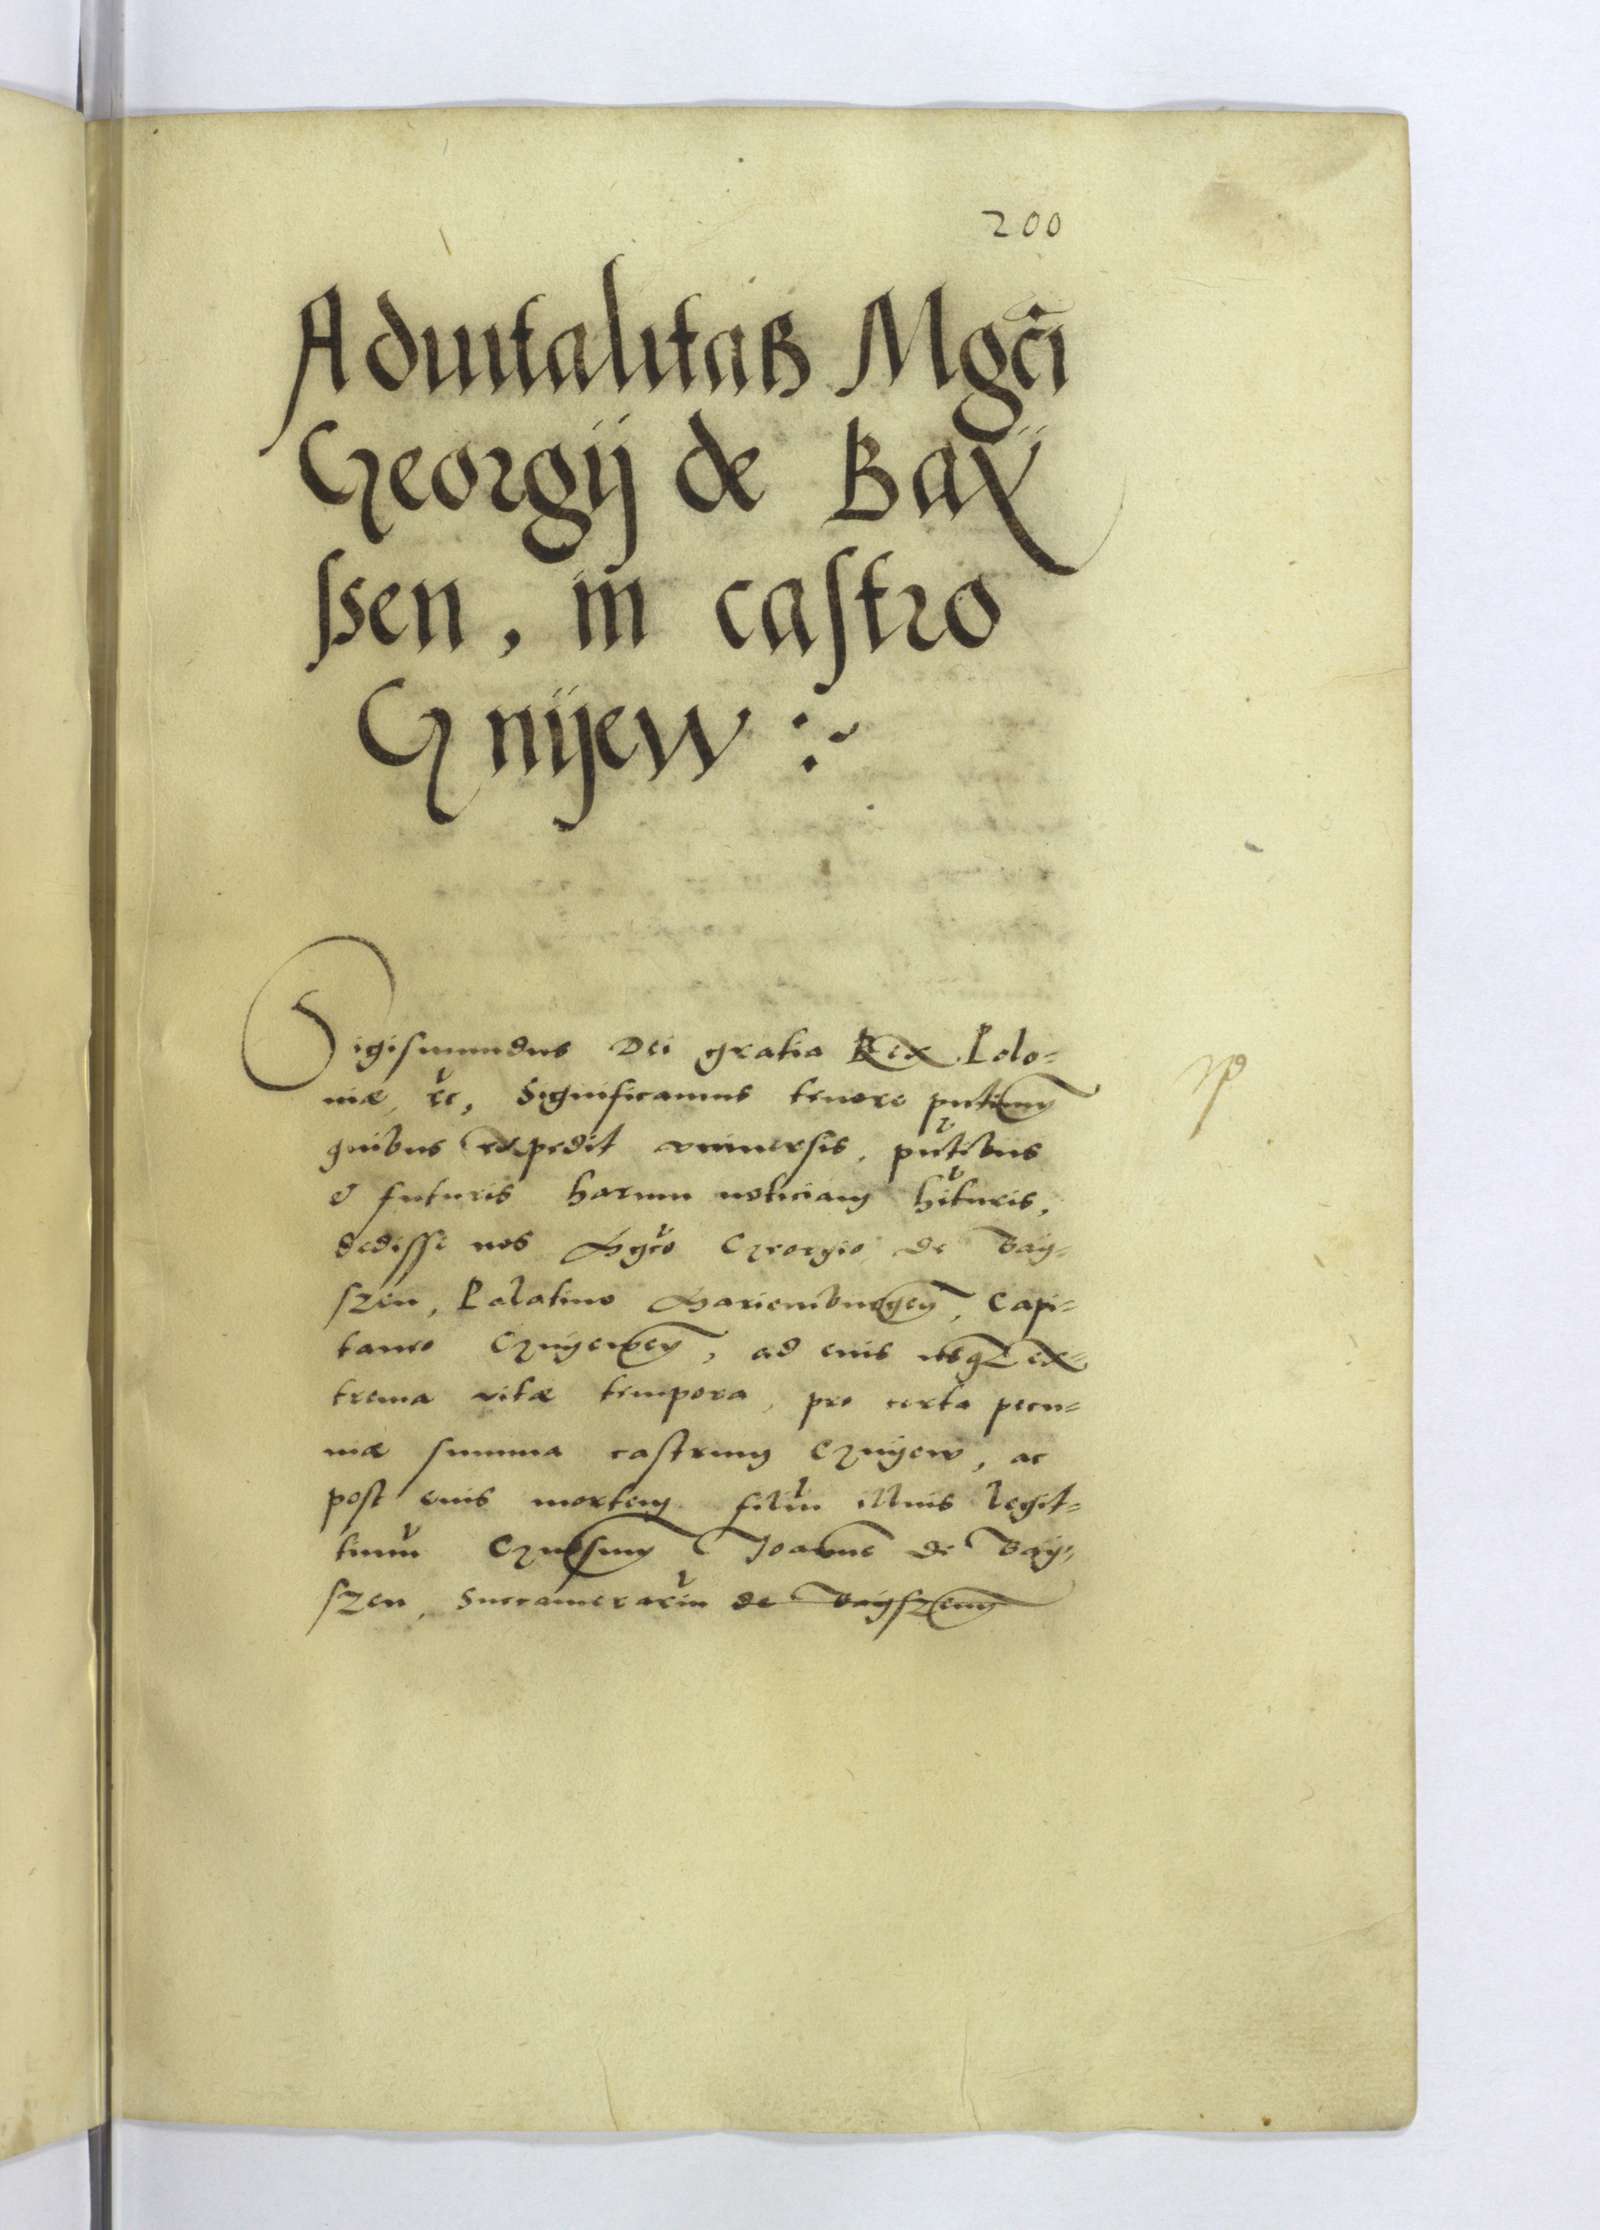 200
Aduitalitas Mgci
Georgij de Baÿ
ssen, in castro
Gnijew :~
Sigismundus Dei gratia Rex Polo=
niæ, etc, Significamus tenore pntium
quibus expedit vniuersis, pntibus
& futuris harum noticiam hituris,
dedisse nos Mgco Georgio de Baÿ=
szen, Palatino Mariemburgen, Capi=
taneo Gnÿewen, ad eius usq ex=
trema vitæ tempora, pro certa pecu=
niæ summa castrum Gnÿew, ac
post eius mortem filiu illius legit=
timu Gnosum Joanne de Baÿ=
szen, Succamerariu de Baÿszenn